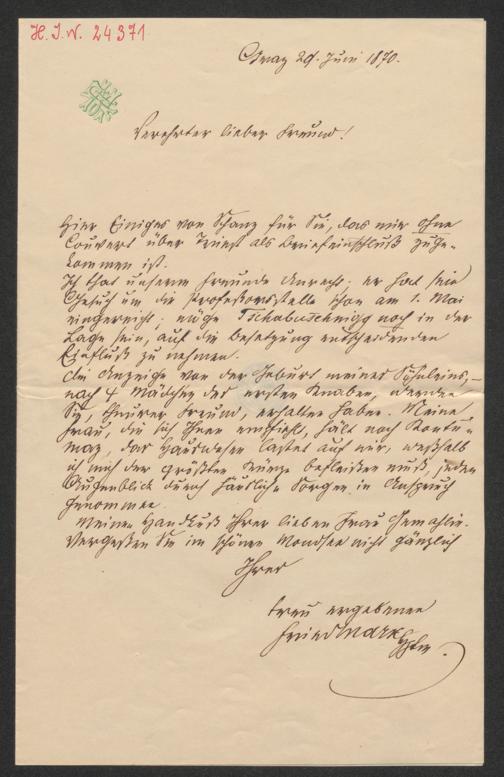 H. I. N. 24371
Graz 29. Juni 1870.
Verehrter lieber Freund!
Hier Einiges von Schanz für Sie, das mir ohne
Couvert über Triest als Briefeinschluß zuge-
kommen ist.
Ich that unserem Freunde Unrecht; er hat sein
Gesuch um die Professorsstelle schon am 1. Mai
eingereicht; möge Tschabuschnigg noch in der
Lage sein, auf die Besetzung entscheidenden
Einfluß zu nehmen.
Die Anzeige von der Geburt meines Söhnleins, –
nach 4 Mädchen der ersten Knaben, werden
Sie, theurer Freund, erhalten haben. Meine
Frau, die sich Ihnen empfiehlt, hält noch Kontu-
maz, das Hauswesen lastet auf mir, weßhalb
ich mich der größten Kürze befleißen muß, jeden
Augenblick durch häusliche Sorgen in Anspruch
genommen.
Meinen Handkuß Ihrer lieben Frau Gemahlin.
Vergeßen Sie im schönen Mondsee nicht gänzlich
Ihres
treu ergebenen